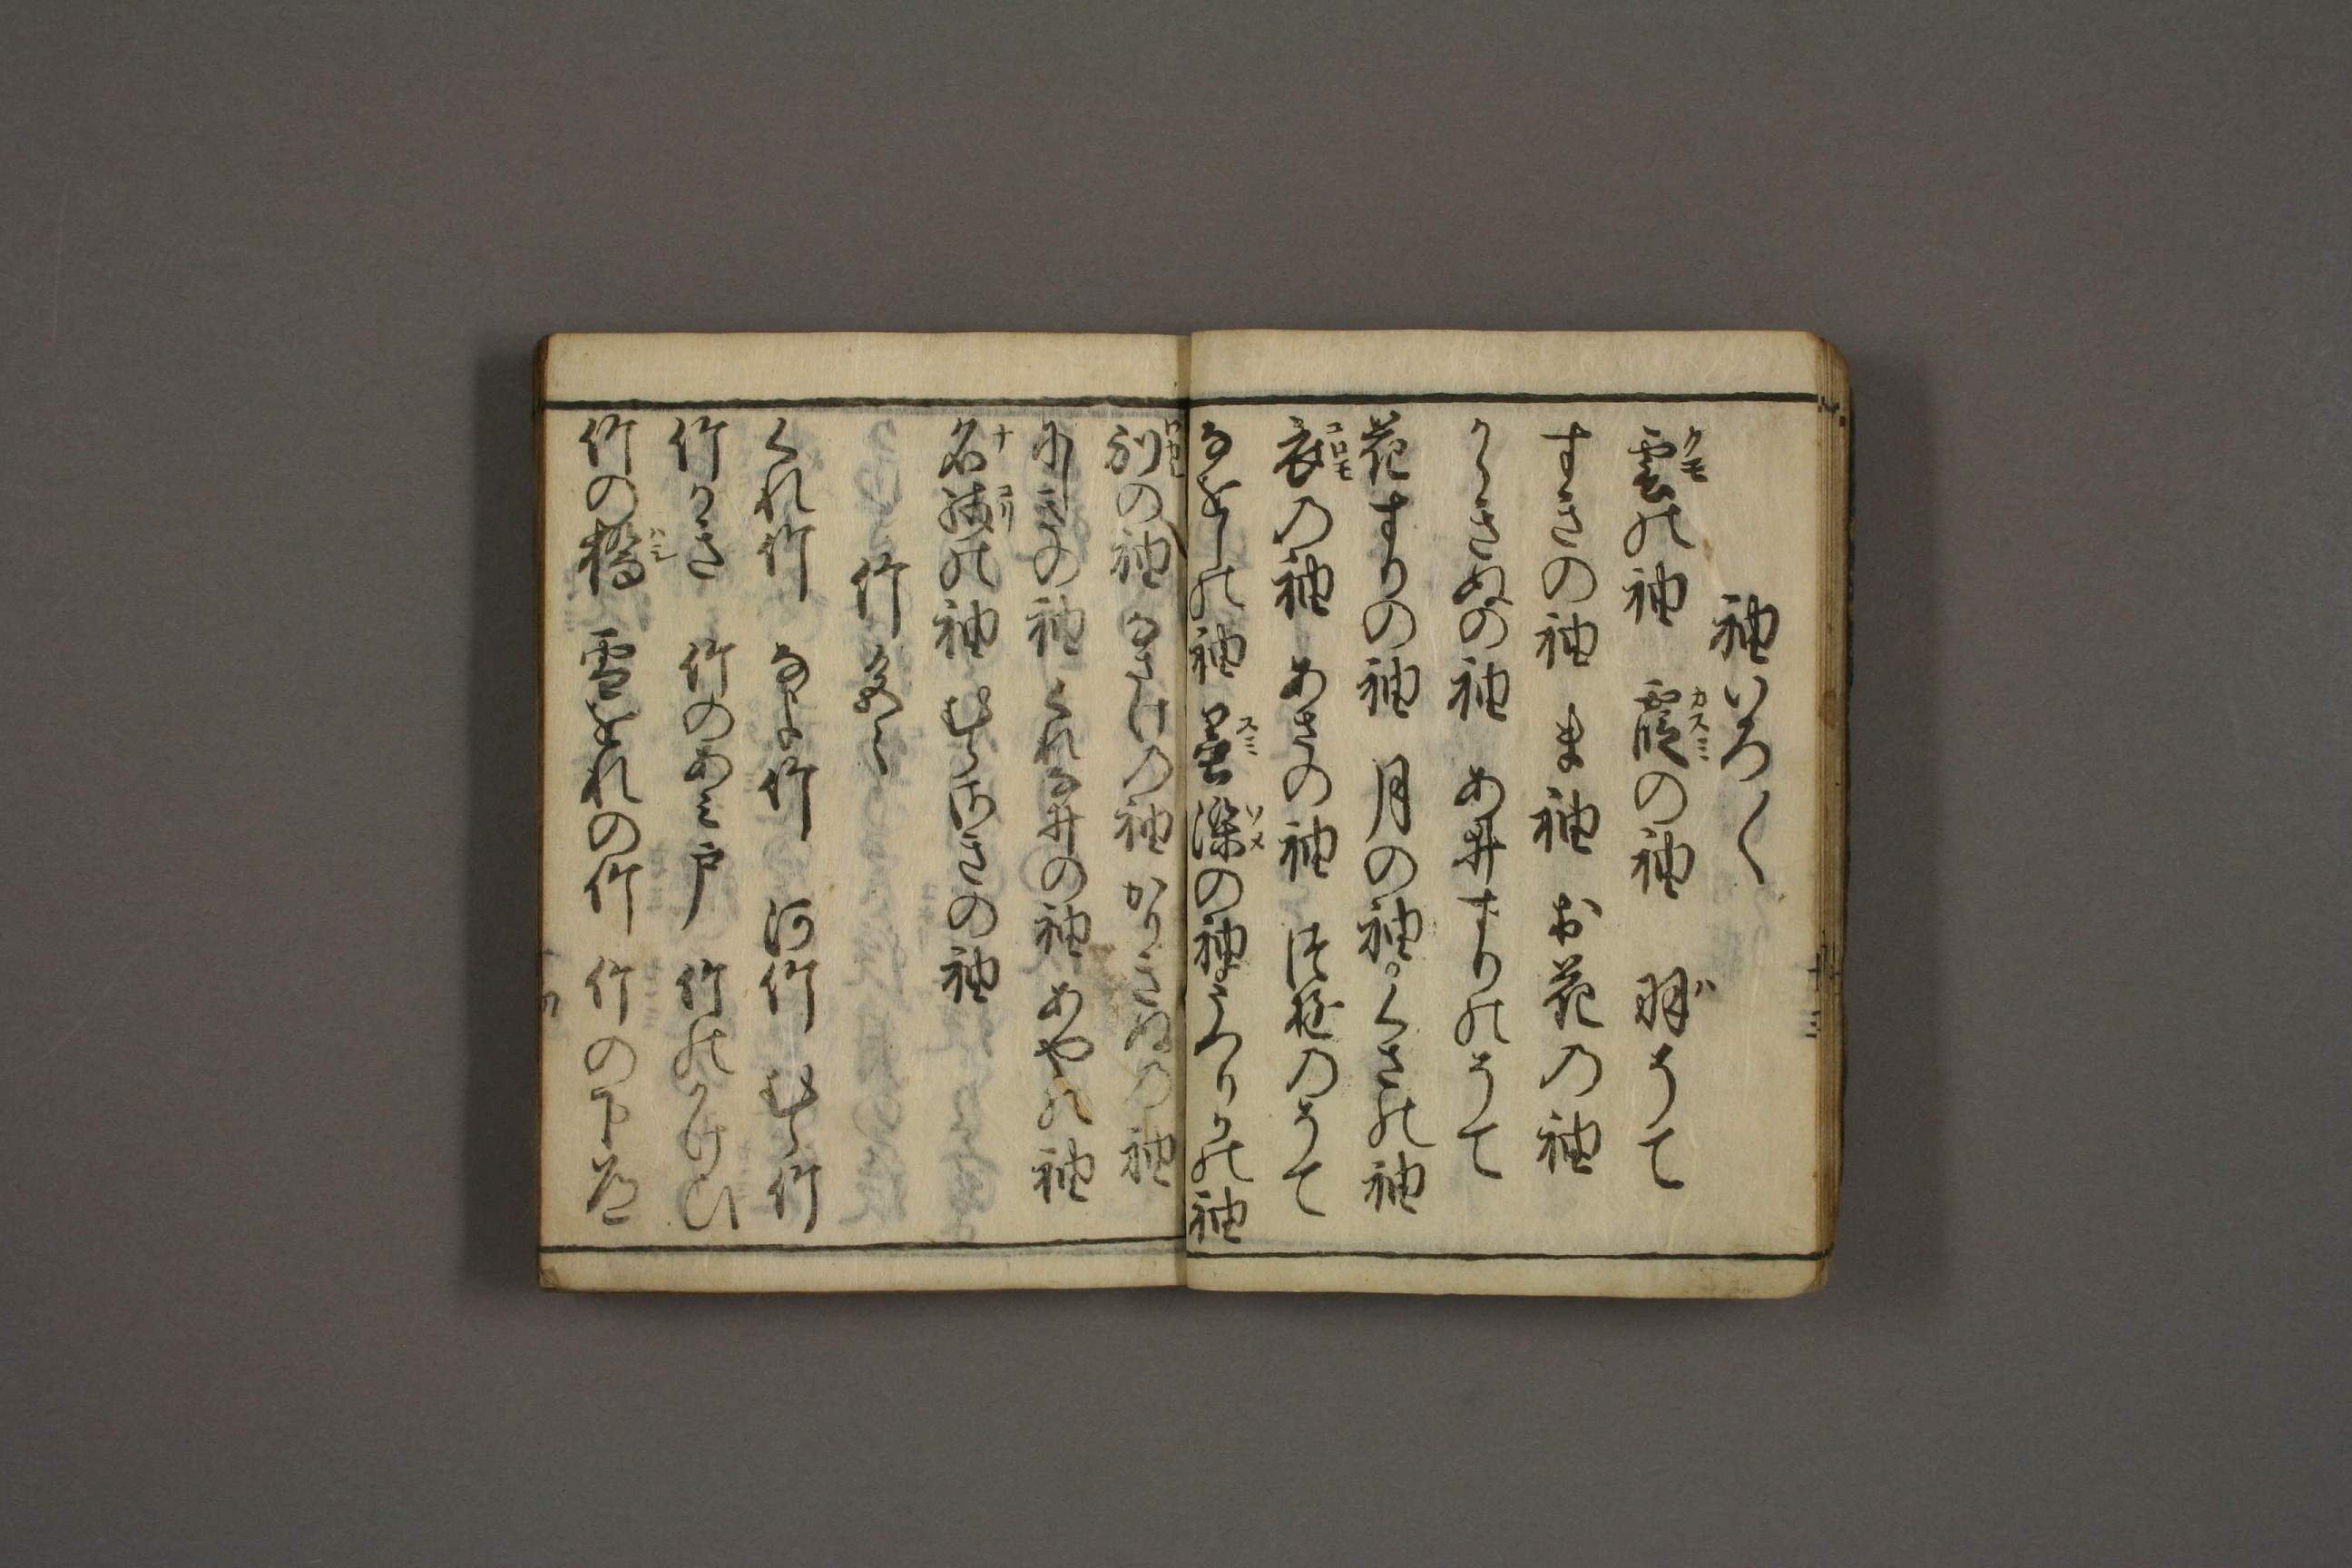 袖いろ〳〵
雲の袖 霞の袖 そて
すきの袖 ま袖 お花の袖
からきぬの袖 あ井すりのそて
花すりの袖 月の袖 くさの袖
衣の袖 あさの袖 のそて
なをしの袖 墨染の袖 の袖
別の袖 なさけの袖 かりきぬの袖
にしきの袖 くれな井の袖 あやの袖
名残の袖 むらさきの袖
竹名〻
くれ竹 なよ竹 河竹 むら竹
竹かき 竹のあミ戸 竹のかけひ
竹の橋 雪をれの竹 竹の下道